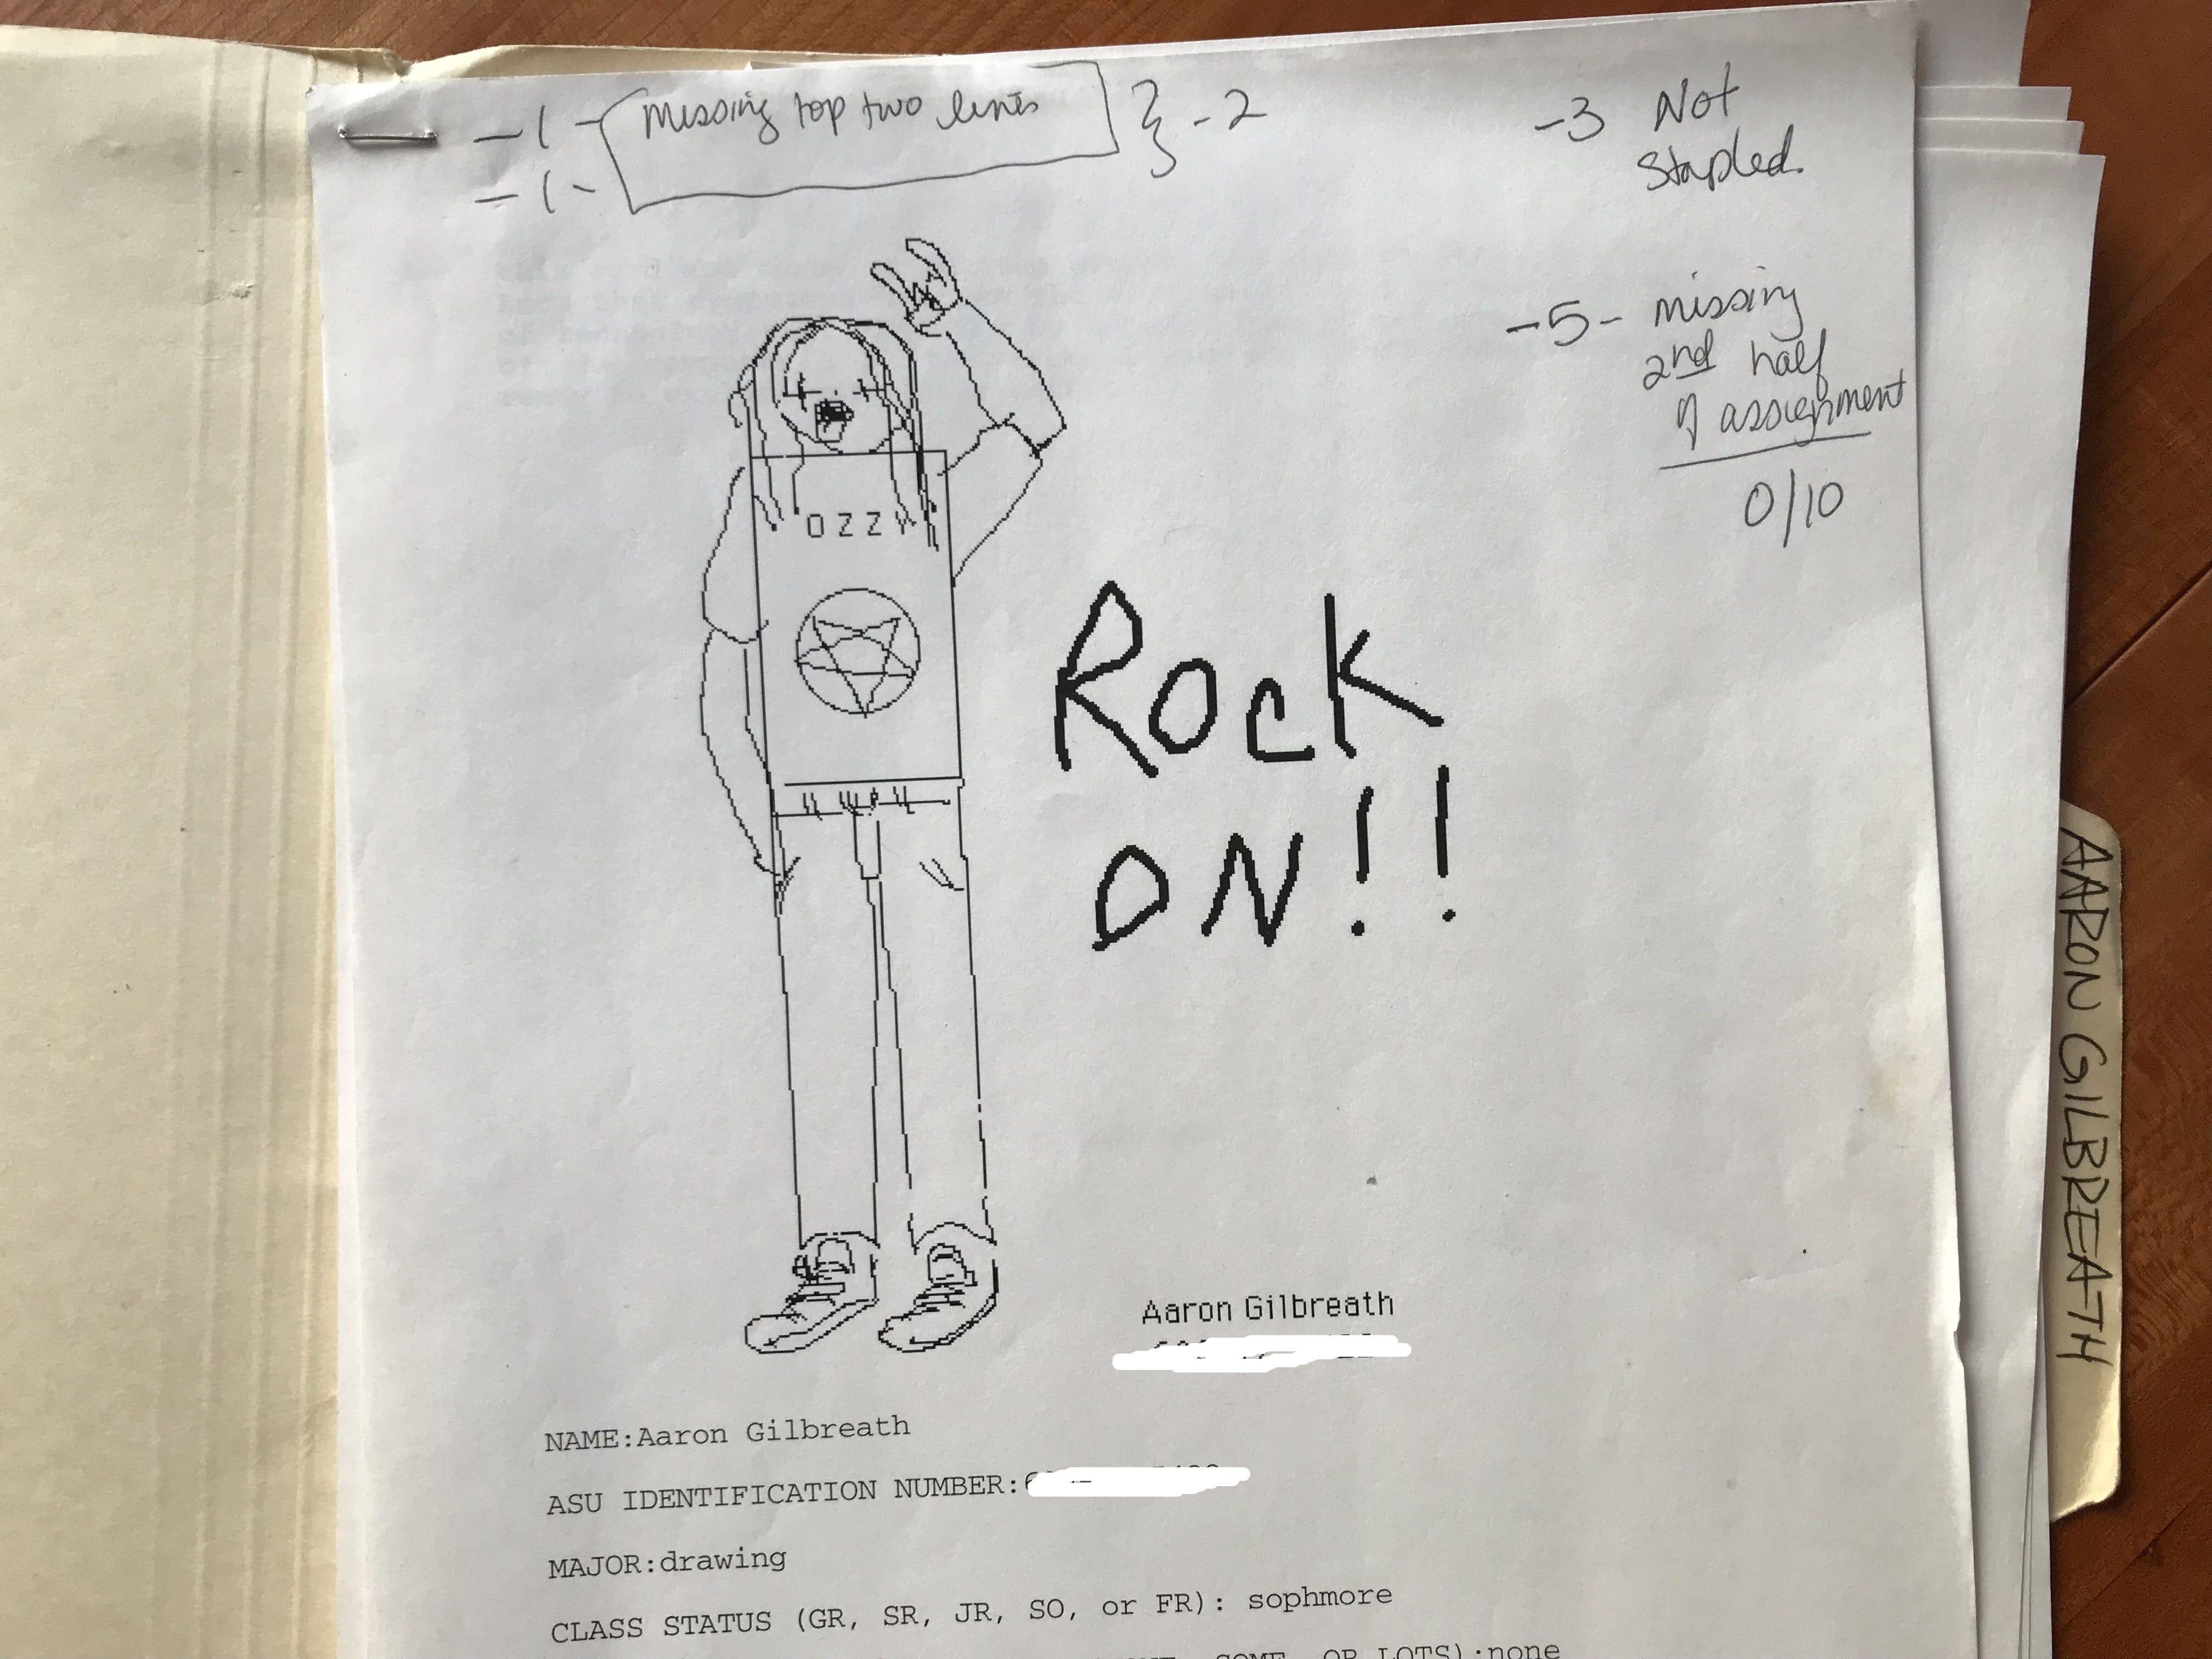 -1 - missing top two lines } -2
-1 -
-3 Not
stapled.
-5 - missing
2nd half
of assignment
0/10
OZZY
ROCK
ON!!
Aaron Gilbreath
NAME:Aaron Gilbreath
ASU IDENTIFICATION NUMBER:
MAJOR:drawing
CLASS STATUS (GR, SR, JR, SO, or FR): sophmore
SOME, OR LOTS):none
AARON GILBREATH